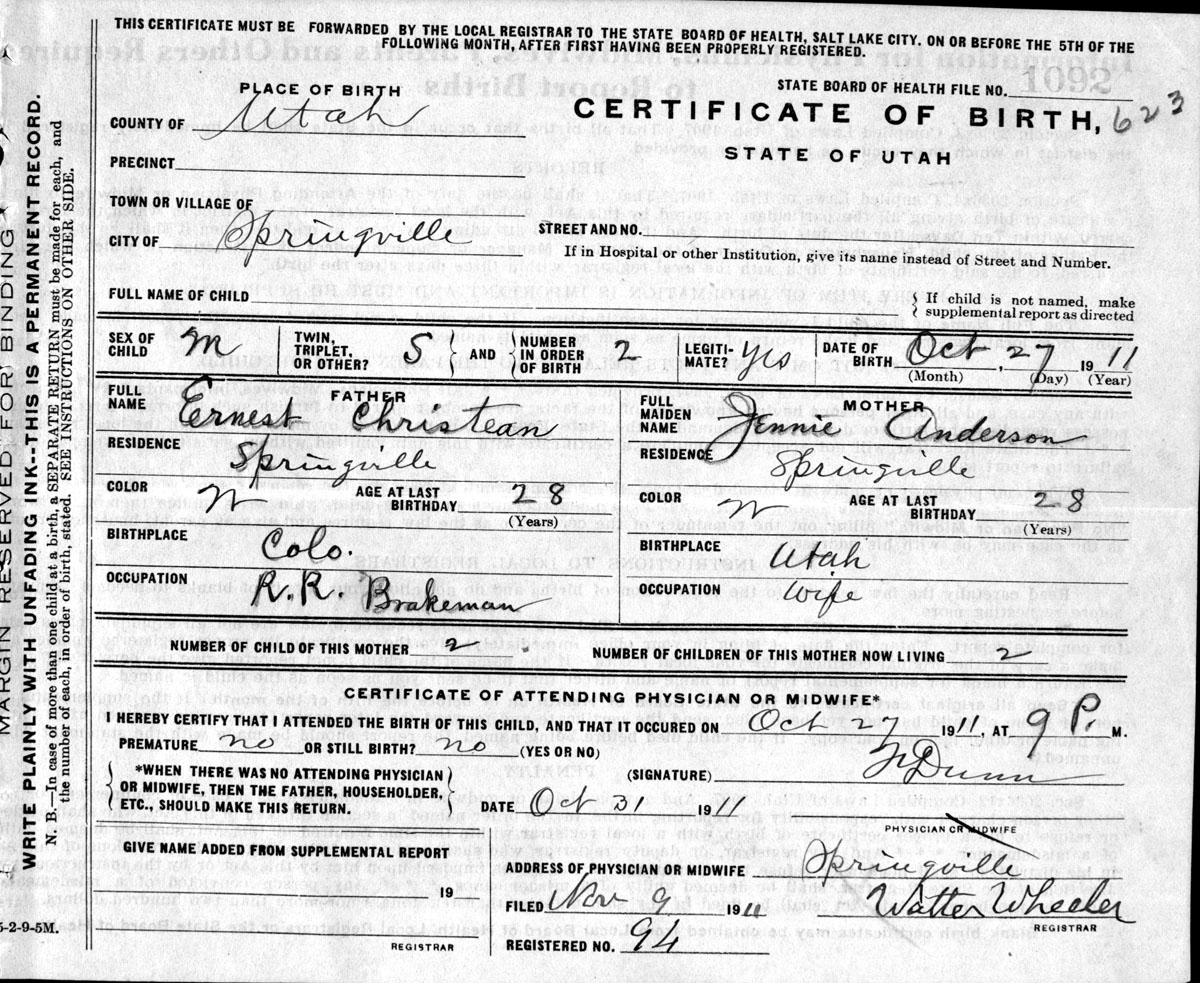 THIS CERTIFICATE MUST BE FORWARDED BY THE LOCAL REGISTRAR TO THE STATE BOARD OF HEALTH, SALT LAKE CITY, ON OR BEFORE THE 5TH OF THE
FOLLOWING MONTH, AFTER FIRST HAVING BEEN PROPERLY REGISTERED.
MARGIN RESERVED FOR BINDING
WRITE PLAINLY WITH UNFADING INK--THIS IS A PERMANENT RECORD.
N. B.—In case of more than one child at a birth, a SEPARATE RETURN must be made for each, and
the number of each, in order of birth, stated. SEE INSTRUCTIONS ON OTHER SIDE.
PLACE OF BIRTH
STATE BOARD OF HEALTH FILE NO.
1092
CERTIFICATE OF BIRTH, 623
STATE OF UTAH
COUNTY OF Utah
PRECINCT
TOWN OR VILLAGE OF
CITY OF Springville
STREET AND NO.
If in Hospital or other Institution, give its name instead of Street and Number.
FULL NAME OF CHILD
{ If child is not named, make
supplemental report as directed
SEX OF CHILD M
TWIN, TRIPLET, OR OTHER? S AND NUMBER IN ORDER OF BIRTH 2
LEGITIMATE? yes
DATE OF BIRTH Oct 27, 1911
(Month) (Day) (Year)
FATHER
FULL NAME Ernest Christean
RESIDENCE Springville
COLOR W AGE AT LAST BIRTHDAY 28
(Years)
BIRTHPLACE Colo.
OCCUPATION R.R. Brakeman
MOTHER
FULL MAIDEN NAME Jennie Anderson
RESIDENCE Springville
COLOR W AGE AT LAST BIRTHDAY 28
(Years)
BIRTHPLACE Utah
OCCUPATION Wife
NUMBER OF CHILD OF THIS MOTHER 2
NUMBER OF CHILDREN OF THIS MOTHER NOW LIVING 2
CERTIFICATE OF ATTENDING PHYSICIAN OR MIDWIFE*
I HEREBY CERTIFY THAT I ATTENDED THE BIRTH OF THIS CHILD AND THAT IT OCCURED ON Oct 27 1911, AT 9 P. M.
PREMATURE no OR STILL BIRTH? no (YES OR NO)
*WHEN THERE WAS NO ATTENDING PHYSICIAN
OR MIDWIFE, THEN THE FATHER, HOUSEHOLDER,
ETC., SHOULD MAKE THIS RETURN.
(SIGNATURE) Dunn
DATE Oct 31 1911
PHYSICIAN OR MIDWIFE
GIVE NAME ADDED FROM SUPPLEMENTAL REPORT
19
REGISTRAR
ADDRESS OF PHYSICIAN OR MIDWIFE Springville
FILED Nov 9 1911
Walter Wheeler
REGISTRAR
REGISTERED NO. 94
5-2-9-5M.